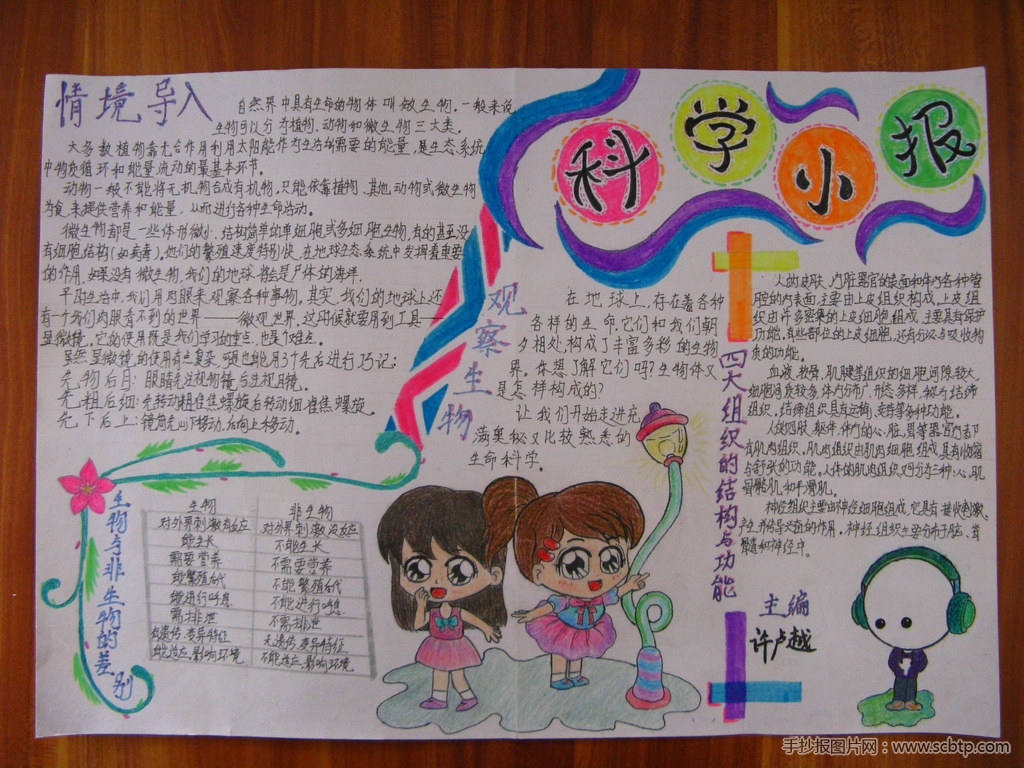 科学小报
情境导入
自然界中具有生命的物体叫做生物。一般来说
生物可以分为植物、动物和微生物三大类。
大多数植物靠光合作用利用太阳能作为生活所需要的能量,是生态系统
中物质循环和能量流动的最基本环节。
动物一般不能将无机物合成有机物,只能依靠植物、其他动物或微生物
为食,来提供营养和能量,从而进行各种生命活动。
微生物都是一些体形微小、结构简单的单细胞或多细胞生物,有的甚至没
有细胞结构(如病毒)。他们的繁殖速度特别快,在地球生态系统中发挥着重要
的作用,如果没有微生物,我们的地球将会是尸体的海洋.
平时生活中,我们用肉眼来观察各种事物。其实,我们的地球上还
有一个我们肉眼看不到的世界——微观世界,这时候就要用到工具——
显微镜。它的使用既是我们学习的重点,也是个难点。
虽然显微镜的使用有点复杂,可也能用3个先后进行巧记:
先物后目:眼睛先注视物镜后注视目镜。
先粗后细:先转动粗准焦螺旋后转动细准焦螺旋。
先下后上:镜筒先向下移动,后向上移动。
观察生物
在地球上,存在着各种
各样的生命,它们和我们朝
夕相处,构成了丰富多彩的生物
界。你想了解它们吗?生物体又
是怎样构成的?
让我们开始走进充
满奥秘又比较熟悉的
生命科学。
生物与非生物的差别
生物 非生物
对外界刺激有反应 对外界刺激没反应
能生长 不能生长
需要营养 不需要营养
能繁殖后代 不能繁殖后代
能进行呼吸 不能进行呼吸
需排泄 不需排泄
有遗传、变异特征 无遗传、变异特征
能适应、影响环境 不能适应、影响环境
四大组织的结构与功能
人的皮肤、内脏器官的表面和体内各种管
腔的内表面主要由上皮组织构成,上皮组
织由许多密集的上皮细胞组成,主要具有保护
功能,有些部位的上皮细胞,还有分泌与吸收物
质的功能。
血液、软骨、肌腱等组织的细胞间隙较大,
细胞间质较多,体内分布广,形态多样,称为结缔
组织。结缔组织具有运输、支持等多种功能。
人的四肢、躯体、体内的心脏、胃等器官内都
有肌肉组织。肌肉组织由肌肉细胞组成,具有收缩
与舒张的功能。人体的肌肉组织又可分为三种:心肌、
骨骼肌和平滑肌。
神经组织主要由神经细胞组成,它具有接收刺激、
产生并传导兴奋的作用,神经组织主要分布于脑、脊
髓和神经中。
主编
许卢越
手抄报图片网:www.scbtp.com